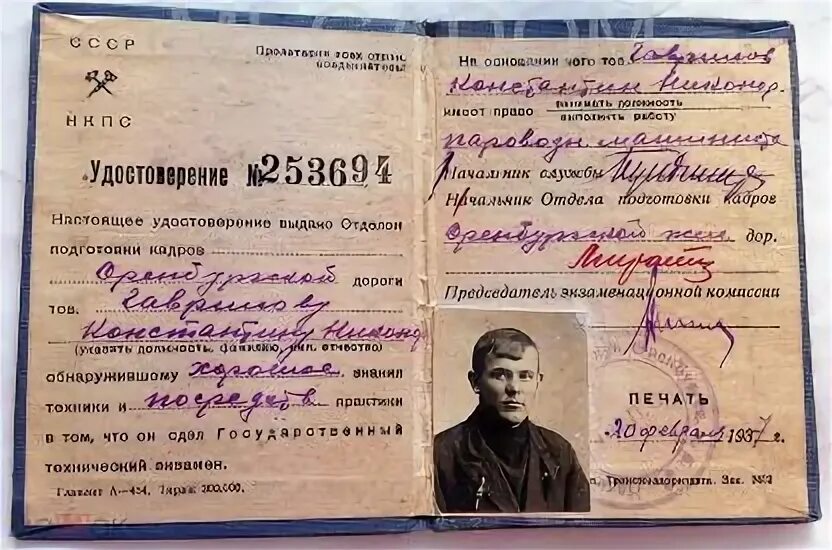 СССР
НКПС
Пролетарии всех стран,
Удостоверение №253694
Настоящее удостоверение выдано Отделом
подготовки кадров
Оренбургской дороги
тов. Гаврилову
Константину Никонд
(указать должность, фамилию, имя, отчество)
обнаружившему хорошее знания
техники и посредств практики
в том, что он сдал Государственный
технический экзамен.
Главлит А—454. Тираж 200.000.
На основании чего тов. Гаврилов
Константин Никонд.
имеет право занимать должность
выполнять работу
паровозн. машиниста
Начальник службы
Начальник Отдела подготовки кадров
Оренбургской жел. дор.
Председатель экзаменационной комиссии
ПЕЧАТЬ
20 февраля 1937 г.
Трансжелдориздата. Зак. №